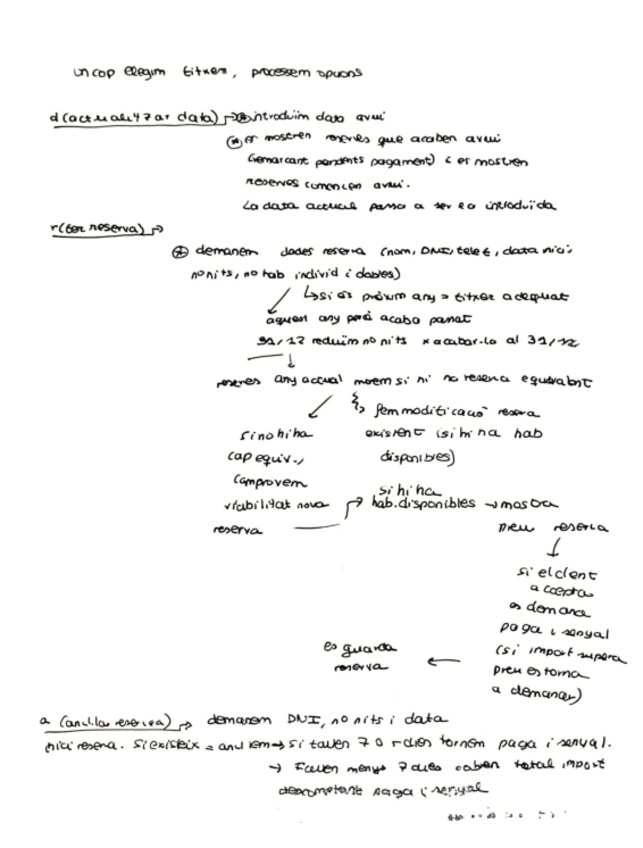 un cop elegim fitxer, processem opcions
d (actualitzar data) → * introduïm data avui
* es mostren reserves que acaben avui
(remarcant pendents pagament) i es mostren
reserves comencen avui.
La data actual passa a ser la introduïda
r (fer reserva) →
* demanem dades reserva (nom, DNI, telef, data inici
no nits, no hab individ i dobles)
↳ si és pròxim any = fitxer adequat
aquest any però acaba passat
31/12 reduïm no nits x acabar-la al 31/12
reserves any actual mirem si hi ha reserva equivalent
fem modificació reserva
si no hi ha existent (si hi ha hab
cap equiv., disponibles)
comprovem
viabilitat nova
reserva
si hi ha
hab. disponibles → mostra
preu reserva
si el client
accepta
es demana
paga i senyal
(si import supera
preu es torna
a demanar)
es guarda
reserva
a (anul·lar reserva) → demanem DNI, no nits i data
inici reserva. Si existeix = anul·lem → si falten 7 o + dies tornem paga i senyal.
→ Falten menys 7 dies cobem total import
descomptant paga i senyal